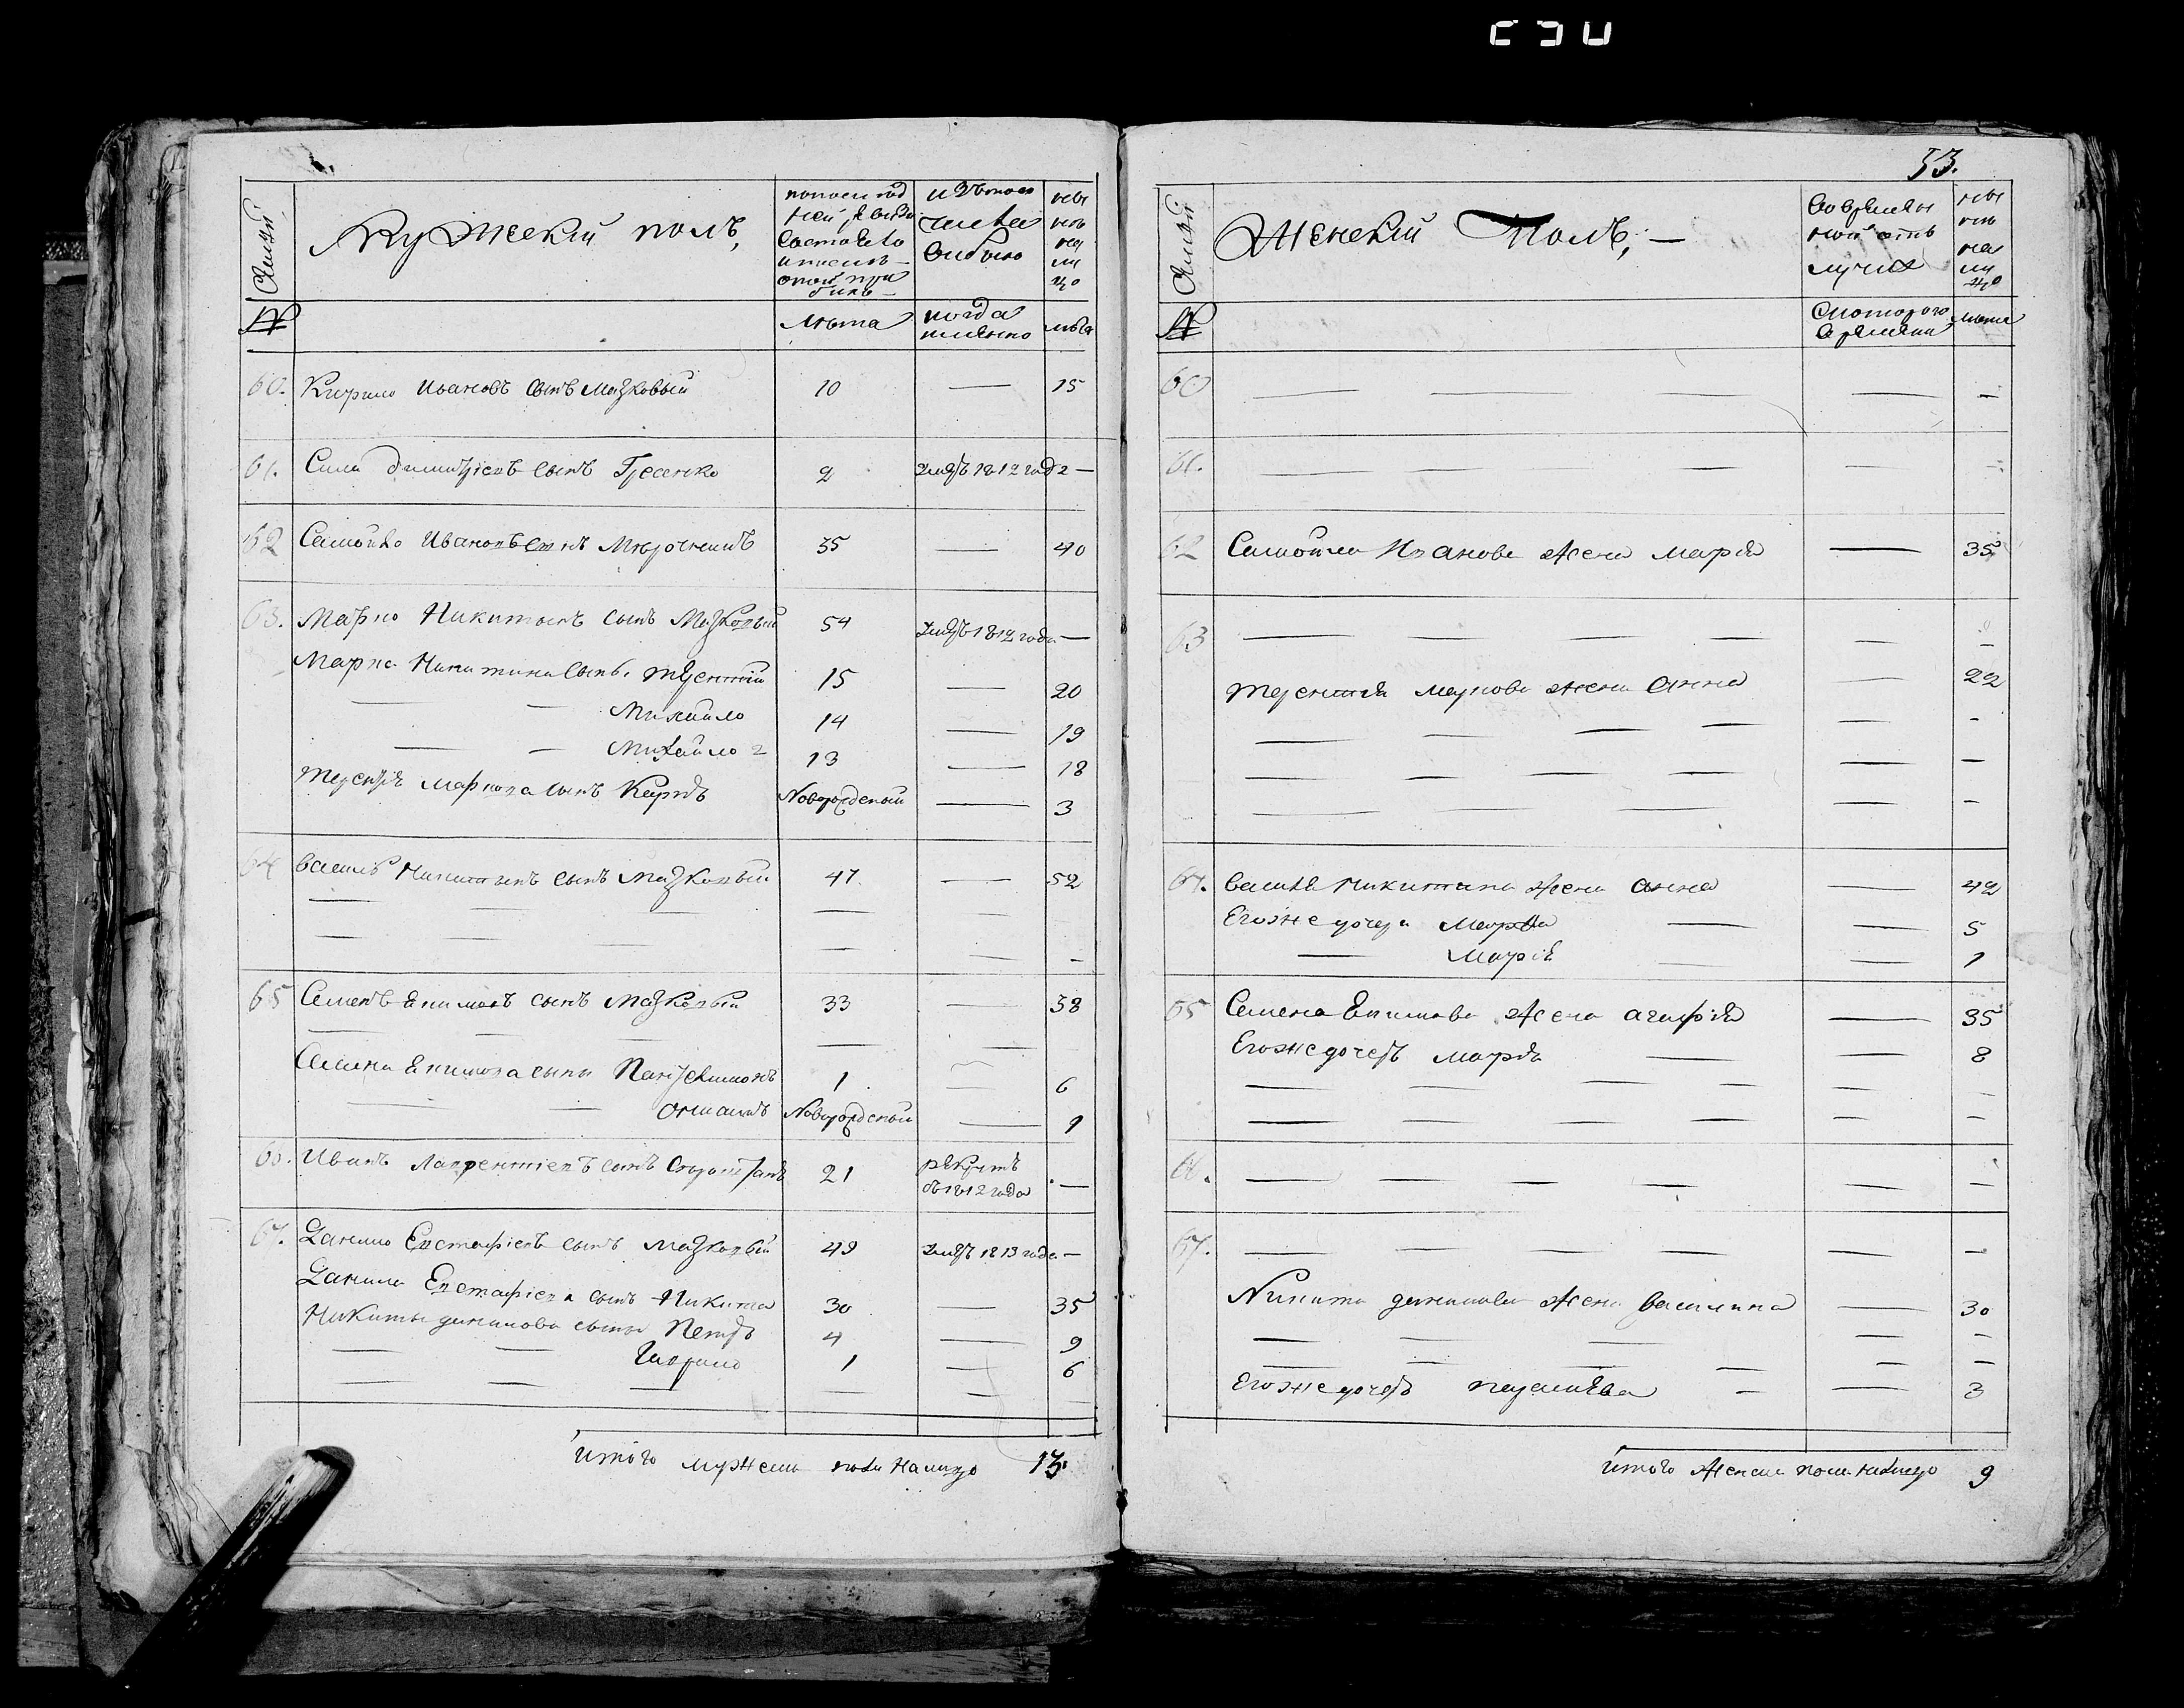 Семьи
Мужеский полъ,
по послед
ней ревизіи
состояло
и после
оной при
было
изъ того
числа
выбыло
ны
не
на
ли
цо
№
Лета
когда
имянно
лета
60. Кирило Ивановъ сынъ Мазковый 10 — 15
61. Сила Димитріевъ сынъ 2 умеръ 1812 года —
62 Самойло Ивановъ сынъ 35 — 40
63. Марко Никитинъ сынъ Мазковый 54 умеръ 1812 года —
Марка Никитина сынъ Терентій 15 — 20
— — Михайло 14 — 19
— — Михайло 2 13 — 18
Терентія Маркова сынъ Карпъ Новорожденый — 3
64 Василь Никитинъ сынъ Мазковый 47. — 52
— — — — —
— — — — — -
65 Семенъ Екимовъ сынъ Мазковый 33 — 38
— — — —
Семена Екимова сыны Пантелимонъ 1 — 6
— — Новорожденый — 1
66. Иванъ Лаврентіевъ сынъ 21 рекрутъ
въ 1812 года —
67. Данило Евстафіевъ сынъ Мазковый 49 умеръ 1813 года —
Данила Евстафіева сынъ Никита 30 — 35
Никиты Данилова сыны Петръ 4 — 9
— — Гаврило 1 — 6
— — — —
Итого мужеска пола налицо 13.
53.
Семьи
Женскій Полъ, —
Во временн
ной отлу
лучке
ны
не
на
ли
цо
№
Скоторого
времени
лета
60 — — — — -
61. — — — -
62 Самойла Иванова жена Марія — 35
63 — — — — — -
Терентія Маркова жена Анна — 22
— — — — — -
— — — — — —
— — — — -
64. Василя Никитина жена Анна — 42
Егоже дочери Марфа — — 5
— Марія — — 1
65 Семена Екимова жена Агафія — 35
Егоже дочерь Марія — — 8
— — — — — —
— — — — — —
66. — — — — — —
67. — — — — — —
Никиты Данилова жена Василина — 30
— — — — -
— — — — — —
Егоже дочерь — — 3
Итого женска пола налицо 9